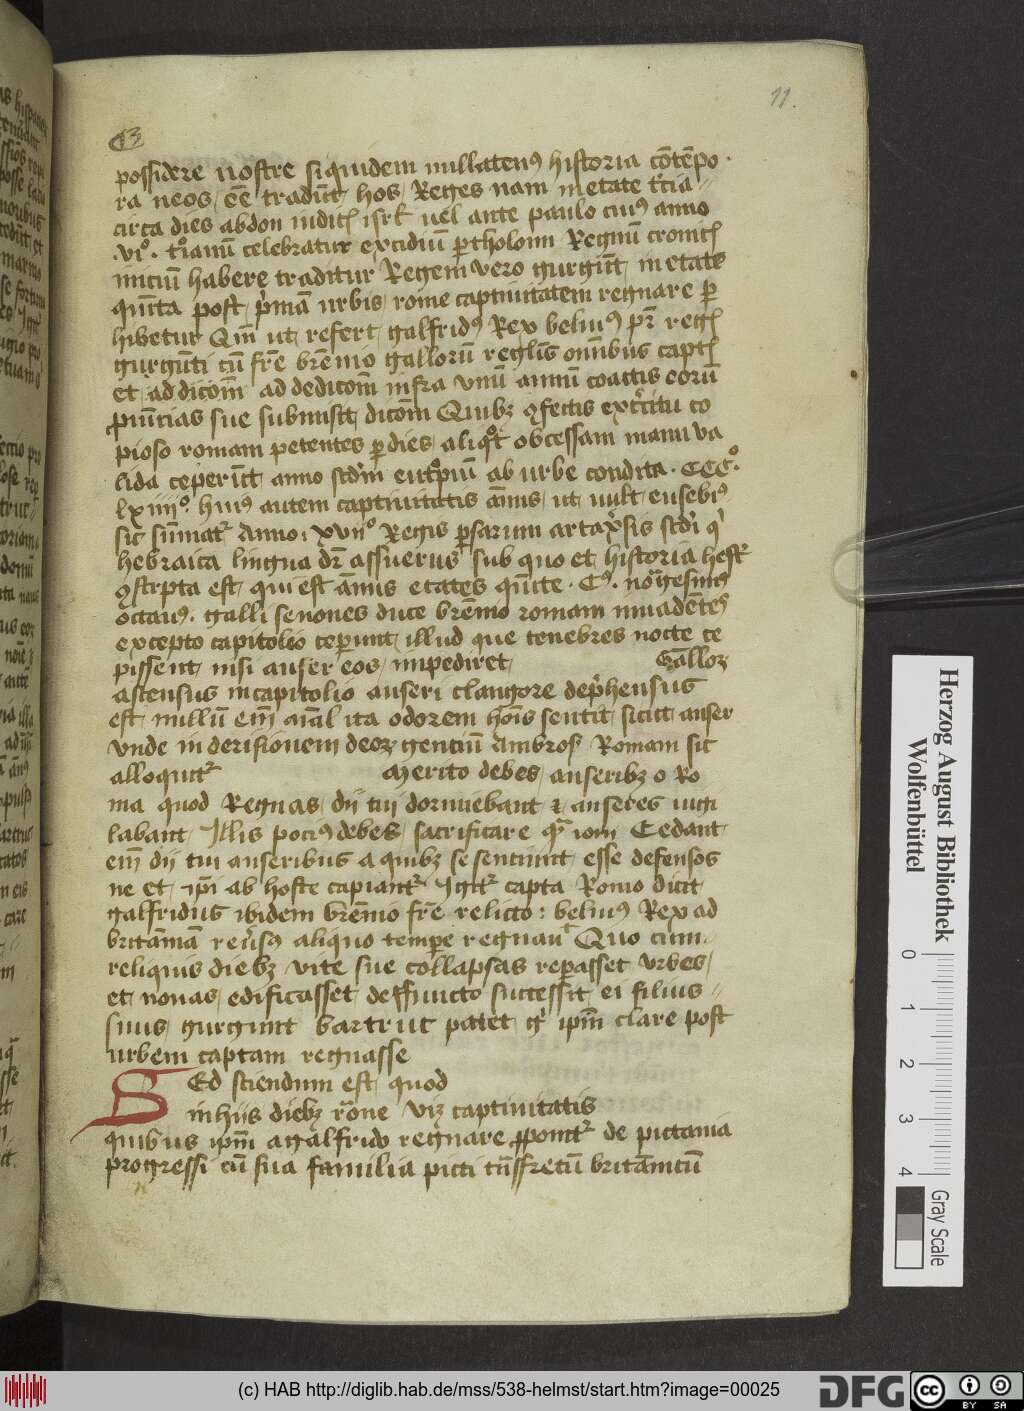 11.
13
possidere nostre siquidem nullatenꝰ historia cōtēpo
ra neos, eē tradūt, hos, Reges nam in etate tͨcia
circa dies abdon iudicꝭ isrl̄ uel ante paulo cuiꝰ anno
.viº. tͦianū celebratur excidiū ꝑtholom Regnū
iniciū habere traditur Regem vero gurgūt, in etate
qūta post, pͥmā urbis, rome captiuitatem regnare ꝑ
hibetur Qm̄ ut, refert, galfridꝰ Rex beliuꝰ pr̄ regꝭ
gurgūti cū fr̄e brēnio gallorū reglīs omībus captꝭ
et, ad dicōm̄ ad dedicōm̄ infra vnū annū coactis eorū
ꝓuīcias sue submisit, dicōm̄ Quibꝫ ꝯfectis exͨcitu co
pioso romam petentes ꝑ dies, aliqͦt obcessam manu va
lida ceperūt, anno scd̄m eutͦpiū ab urbe condita . CCCº.
lxiiiiº. huiꝰ autem captiuitatis ānus, ut, uult eusebiꝰ
sic sūmatͬ Anno: xviiº Regis ꝑsarum artaxͦsis scd̄i qͥ
hebraica lingua dr̄ assuerus sub quo et, historia hestͬ
ꝯscͥpta est, qui est ānus etates qūte . Cꝰ . nōagesimꝰ
octauꝰ . galli senones duce brēnio romam inuadētes
excepto capitolio ceꝑunt, illud que tenebres nocte ce
pissent, nisi anser eos, impediret, Gallorꝫ
ascensus in capitolio anseri clangore depͥhensus
est, nullū em̄ aīal ita odorem hoīs sentit, sicut, anser
Vnde in derisionem deorꝫ gentiū Ambrosꝭ Romam sic
alloquitͬ Merito debes, anseribꝫ o Ro
ma quod Regnas, dij tui dormiebant ⁊ anseres uigi
labant, Illis pociꝰ debes, sacrificare qͣ ioui Cedant,
em̄ dij tui anseribus a quibꝫ se senciunt, esse defensos
ne et, ip̄i ab hoste capiantͬ Igitͬ capta Romo dicit
galfridus ibidem brēnio fr̄e relicto: beliuꝰ Rex ad
britāniā reuͥsꝰ aliquo temꝑe regnau̅ Quo cum
reliquis diebꝫ vite sue collapsas reꝑasset, vrbes,
et, nouas, edificasset, deffuncto successit, ei filius
suus, gurgiunt bartrut patet, gͥ ip̄m clare post
urbem captam regnasse
Sed sciendum est, quod
in hijs diebꝫ rōne viꝫ captiuitatis
quibus ip̄m a galfrido regnare ꝓponitͬ de pictania
progressi cū sua familia picti tͣnsfretū britānicū
Herzog August Bibliothek
Wolfenbüttel
0 1 2 3 4
Gray Scale
(c) HAB http://diglib.hab.de/mss/538-helmst/start.htm?image=00025
DFG
cc
BY SA